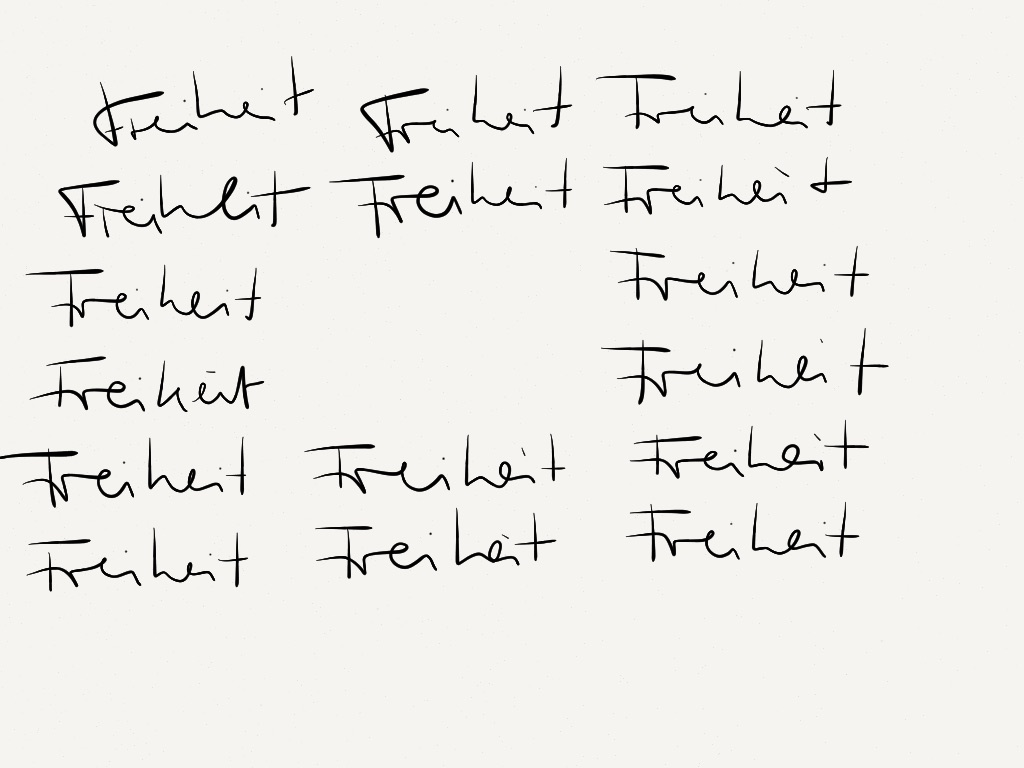 Freiheit Freiheit Freiheit
Freiheit Freiheit Freiheit
Freiheit Freiheit
Freiheit Freiheit
Freiheit Freiheit Freiheit
Freiheit Freiheit Freiheit